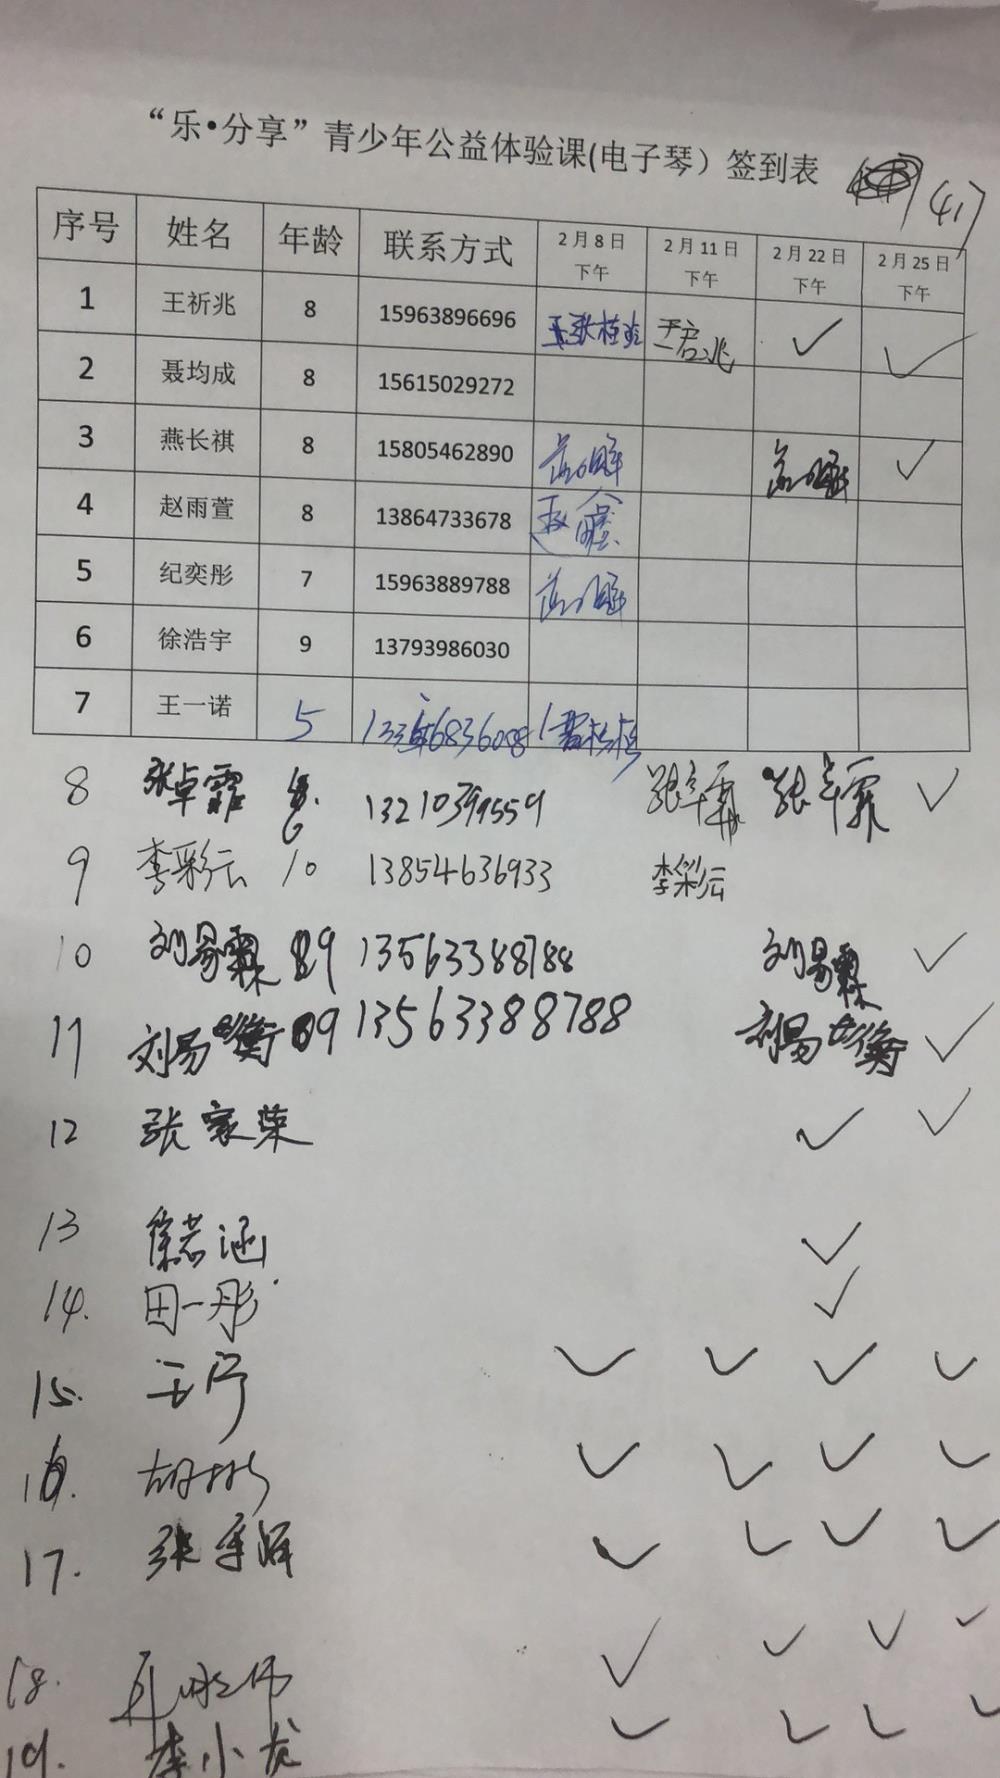 “乐•分享”青少年公益体验课(电子琴）签到表 (41)
序号 姓名 年龄 联系方式 2月8日下午 2月11日下午 2月22日下午 2月25日下午
1 王祈兆 8 15963896696 ✓ ✓
2 聂均成 8 15615029272
3 燕长祺 8 15805462890 ✓
4 赵雨萱 8 13864733678
5 纪奕彤 7 15963889788
6 徐浩宇 9 13793986030
7 王一诺 5
8 张卓霏 6 张卓霏 张卓霏 ✓
9 李彩云 10 13854636933 李彩云
10 刘易霖 9 13563388788 刘易霖 ✓
11 刘易衡 9 13563388788 刘易衡 ✓
12 张家荣 ✓ ✓
13 徐若涵 ✓
14. 田一彤 ✓
15. 王宁 ✓ ✓ ✓ ✓
16. 胡彬 ✓ ✓ ✓ ✓
17. ✓ ✓ ✓ ✓
18. ✓ ✓ ✓ ✓
19. 李小龙 ✓ ✓ ✓ ✓